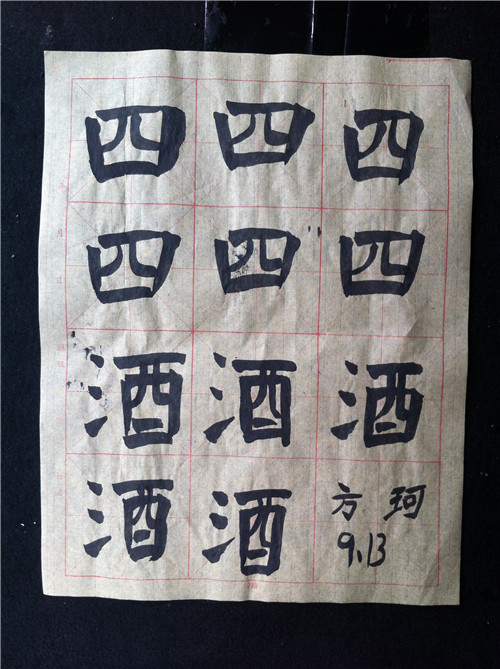 四四四
四四四
酒酒酒
酒酒方珂
9.13